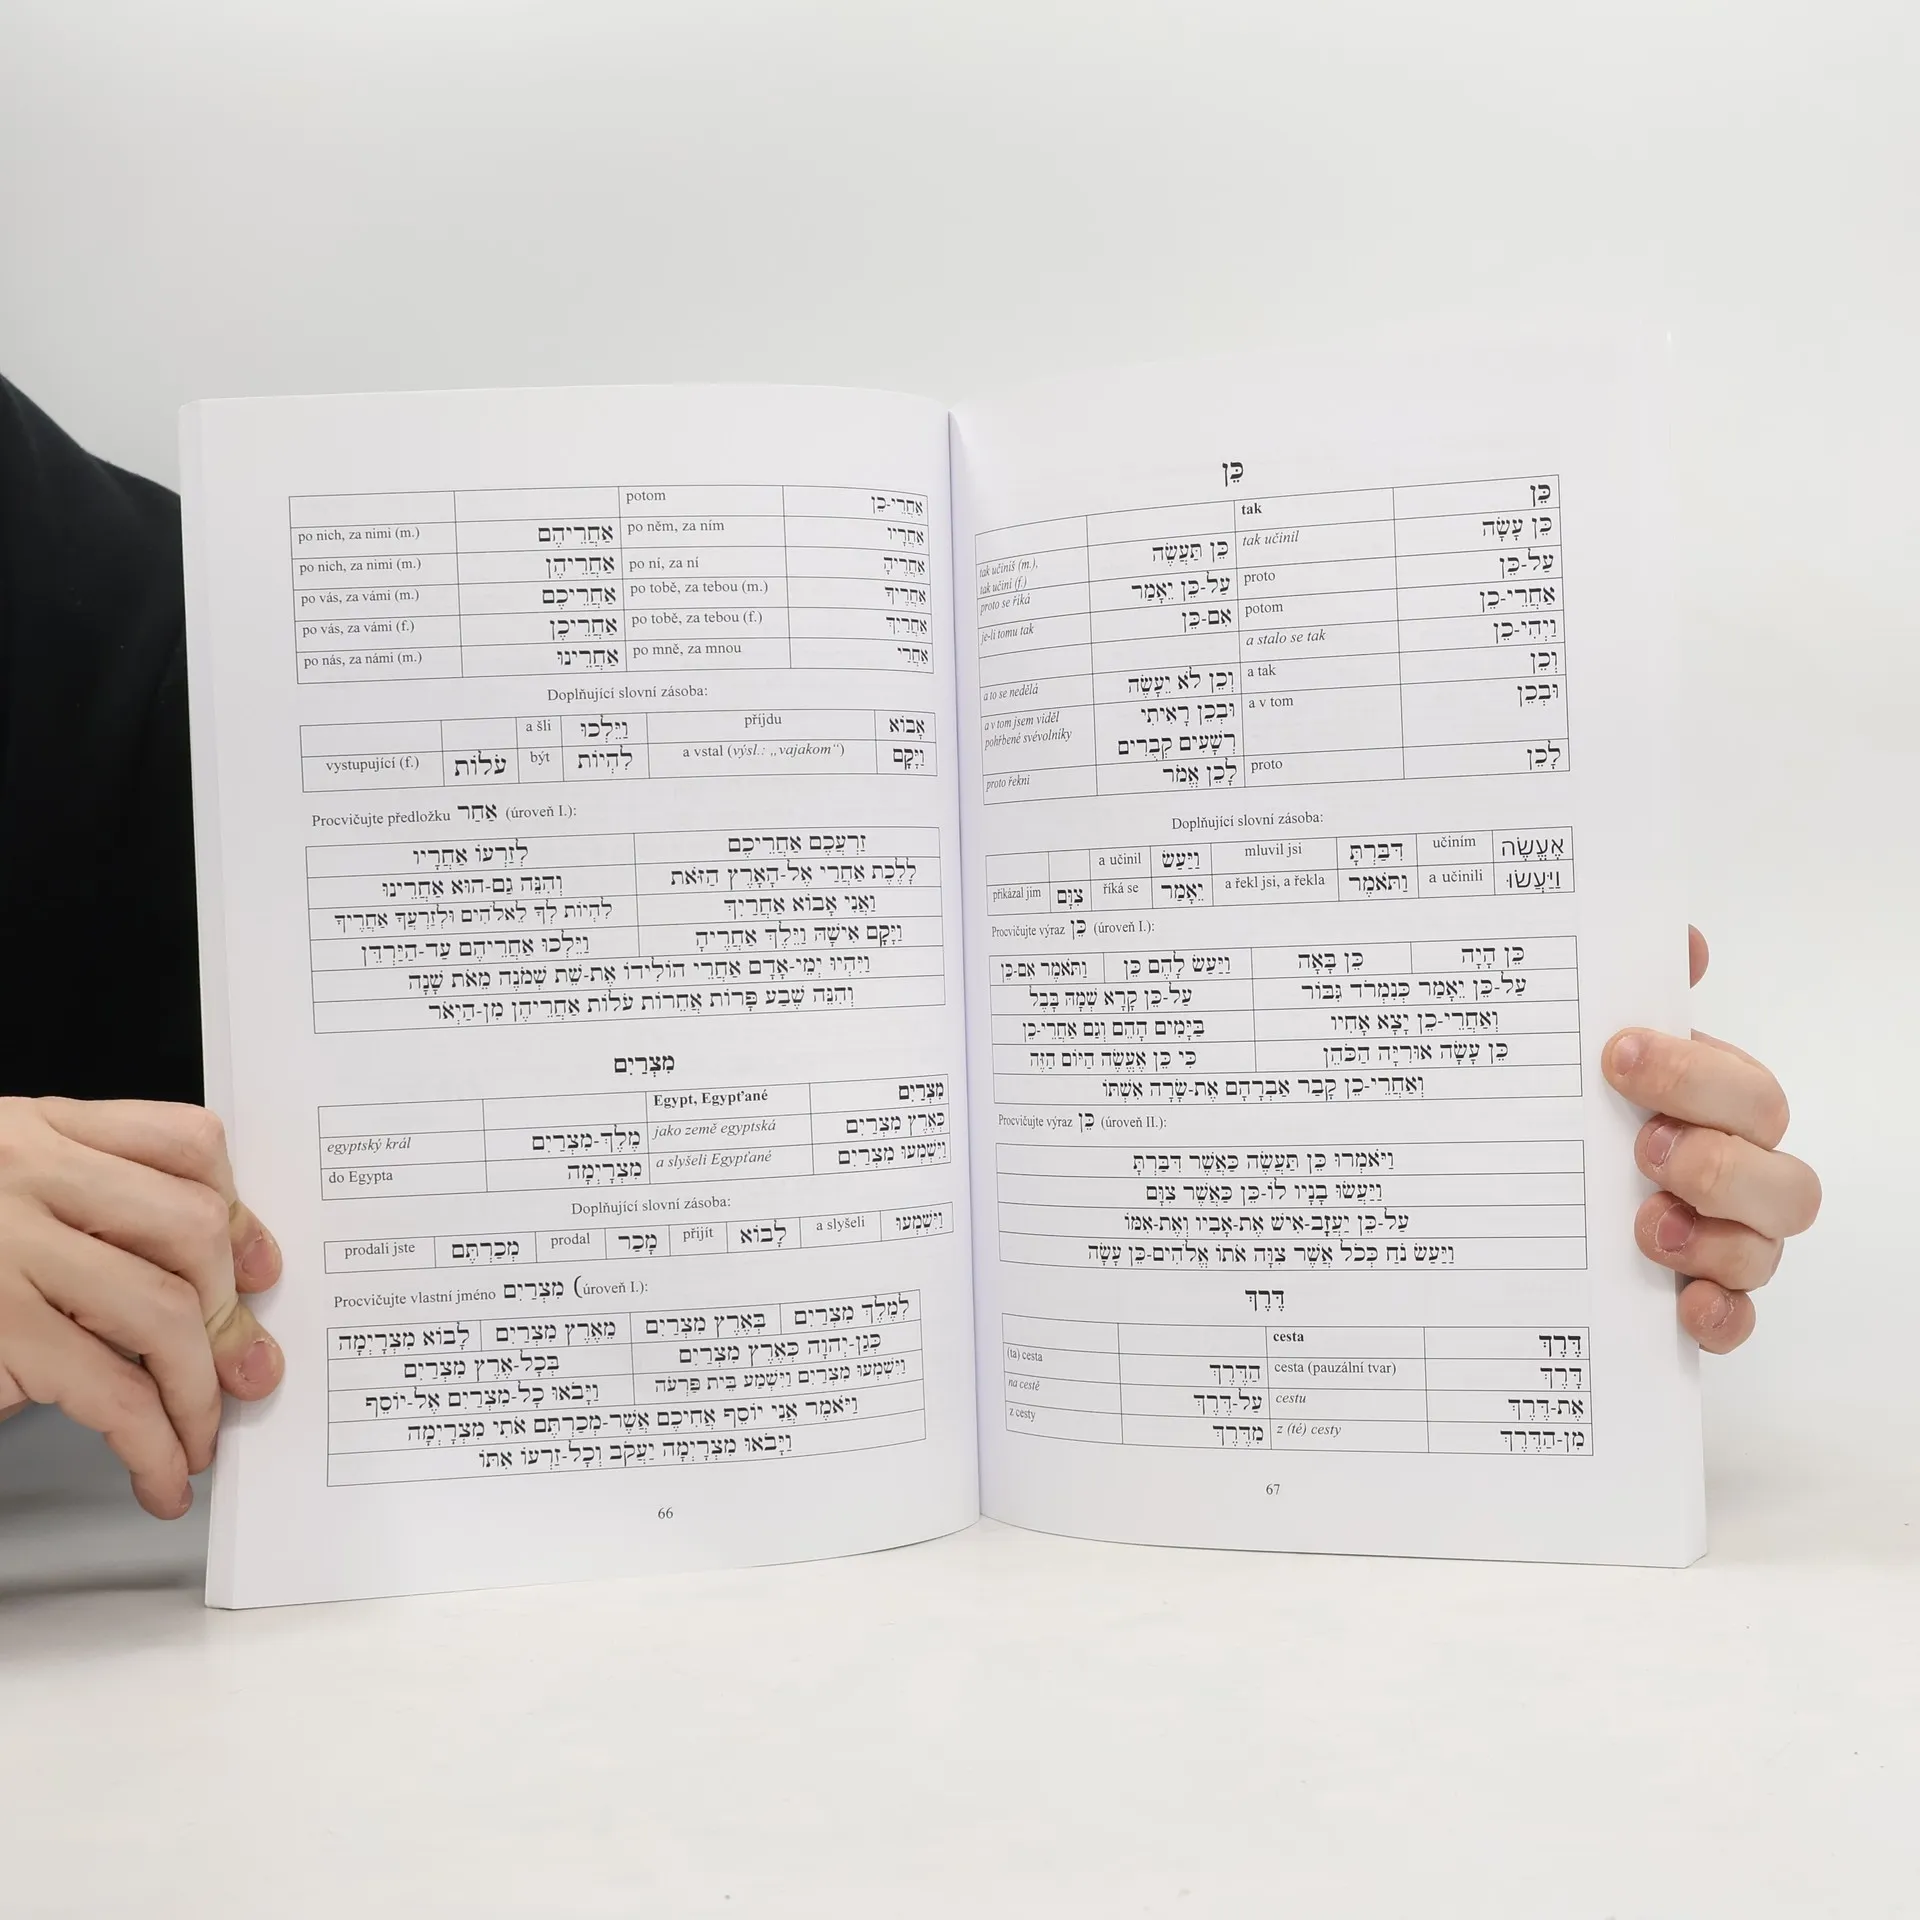 potom אַחֲרֵי-כֵן
po nich, za nimi (m.) אַחֲרֵיהֶם po něm, za ním אַחֲרָיו
po nich, za nimi (m.) אַחֲרֵיהֶן po ní, za ní אַחֲרֶיהָ
po vás, za vámi (m.) אַחֲרֵיכֶם po tobě, za tebou (m.) אַחֲרֶיךָ
po vás, za vámi (f.) אַחֲרֵיכֶן po tobě, za tebou (f.) אַחֲרַיִךְ
po nás, za námi (m.) אַחֲרֵינוּ po mně, za mnou אַחֲרַי
Doplňující slovní zásoba:
a šli וַיֵּלְכוּ příjdu אָבוֹא
vystupující (f.) עֹלוֹת být לִהְיוֹת a vstal (výsl.: „vajakom“) וַיָּקָם
Procvičujte předložku אַחַר (úroveň I.):
זַרְעֲכֶם אַחֲרֵיכֶם לְזַרְעוֹ אַחֲרָיו
לָלֶכֶת אַחֲרַי אֶל-הָאָרֶץ הַזֹּאת וְהִנֵּה גַם-הוּא אַחֲרֵינוּ
וַאֲנִי אָבוֹא אַחֲרַיִךְ לִהְיוֹת לְךָ לֵאלֹהִים וּלְזַרְעֲךָ אַחֲרֶיךָ
וַיָּקָם אִישָׁהּ וַיֵּלֶךְ אַחֲרֶיהָ וַיֵּלְכוּ אַחֲרֵיהֶם עַד-הַיַּרְדֵּן
וַיִּהְיוּ יְמֵי-אָדָם אַחֲרֵי הוֹלִידוֹ אֶת-שֵׁת שְׁמֹנֶה מֵאֹת שָׁנָה
וְהִנֵּה שֶׁבַע פָּרוֹת אֲחֵרוֹת עֹלוֹת אַחֲרֵיהֶן מִן-הַיְאֹר
מִצְרַיִם
Egypt, Egypťané מִצְרַיִם
egyptský král מֶלֶךְ-מִצְרַיִם jako země egyptská כְּאֶרֶץ מִצְרַיִם
do Egypta מִצְרָיְמָה a slyšeli Egypťané וַיִּשְׁמְעוּ מִצְרַיִם
Doplňující slovní zásoba:
prodali jste מְכַרְתֶּם prodal מָכַר přijít לָבוֹא a slyšeli וַיִּשְׁמְעוּ
Procvičujte vlastní jméno מִצְרַיִם (úroveň I.):
לְמֶלֶךְ מִצְרַיִם בְּאֶרֶץ מִצְרַיִם מֵאֶרֶץ מִצְרַיִם לָבוֹא מִצְרָיְמָה
כְּגַן-יְהוָה כְּאֶרֶץ מִצְרַיִם בְּכָל-אֶרֶץ מִצְרַיִם
וַיִּשְׁמְעוּ מִצְרַיִם וַיִּשְׁמַע בֵּית פַּרְעֹה וַיָּבֹאוּ כָל-מִצְרַיִם אֶל-יוֹסֵף
וַיֹּאמֶר אֲנִי יוֹסֵף אֲחִיכֶם אֲשֶׁר-מְכַרְתֶּם אֹתִי מִצְרָיְמָה
וַיָּבֹאוּ מִצְרָיְמָה יַעֲקֹב וְכָל-זַרְעוֹ אִתּוֹ
66
כֵּן
tak כֵּן
tak učiníš (m.), tak učiní (f.) כֵּן תַּעֲשֶׂה tak učinil כֵּן עָשָׂה
proto se říká עַל-כֵּן יֵאָמַר proto עַל-כֵּן
je-li tomu tak אִם-כֵּן potom אַחֲרֵי-כֵן
a stalo se tak וַיְהִי-כֵן
a to se nedělá וְכֵן לֹא יֵעָשֶׂה a tak וְכֵן
a v tom jsem viděl pohřbené svévolníky וּבְכֵן רָאִיתִי רְשָׁעִים קְבֻרִים a v tom וּבְכֵן
proto řekni לָכֵן אֱמֹר proto לָכֵן
Doplňující slovní zásoba:
a učinil וַיַּעַשׂ mluvil jsi דִּבַּרְתָּ učiním אֶעֱשֶׂה
přikázal jim צִוָּם říká se יֵאָמַר a řekl jsi, a řekla וַתֹּאמֶר a učinili וַיַּעֲשׂוּ
Procvičujte výraz כֵּן (úroveň I.):
כֵּן הָיָה כֵּן בָּאָה וַיַּעַשׂ לָהֶם כֵּן וַתֹּאמֶר אִם-כֵּן
עַל-כֵּן יֵאָמַר כְּנִמְרֹד גִּבּוֹר עַל-כֵּן קָרָא שְׁמָהּ בָּבֶל
וְאַחֲרֵי-כֵן יָצָא אָחִיו בַּיָּמִים הָהֵם וְגַם אַחֲרֵי-כֵן
כֵּן עָשָׂה אוּרִיָּה הַכֹּהֵן כִּי כֵּן אֶעֱשֶׂה הַיּוֹם הַזֶּה
וְאַחֲרֵי-כֵן קָבַר אַבְרָהָם אֶת-שָׂרָה אִשְׁתּוֹ
Procvičujte výraz כֵּן (úroveň II.):
וַיֹּאמְרוּ כֵּן תַּעֲשֶׂה כַּאֲשֶׁר דִּבַּרְתָּ
וַיַּעֲשׂוּ בָנָיו לוֹ-כֵּן כַּאֲשֶׁר צִוָּם
עַל-כֵּן יַעֲזָב-אִישׁ אֶת-אָבִיו וְאֶת-אִמּוֹ
וַיַּעַשׂ נֹחַ כְּכֹל אֲשֶׁר צִוָּה אֹתוֹ אֱלֹהִים-כֵּן עָשָׂה
דֶּרֶךְ
cesta דֶּרֶךְ
(ta) cesta הַדֶּרֶךְ cesta (pauzální tvar) דָּרֶךְ
na cestě עַל-דֶּרֶךְ cestu אֶת-דֶּרֶךְ
z cesty מִדֶּרֶךְ z (té) cesty מִן-הַדֶּרֶךְ
67